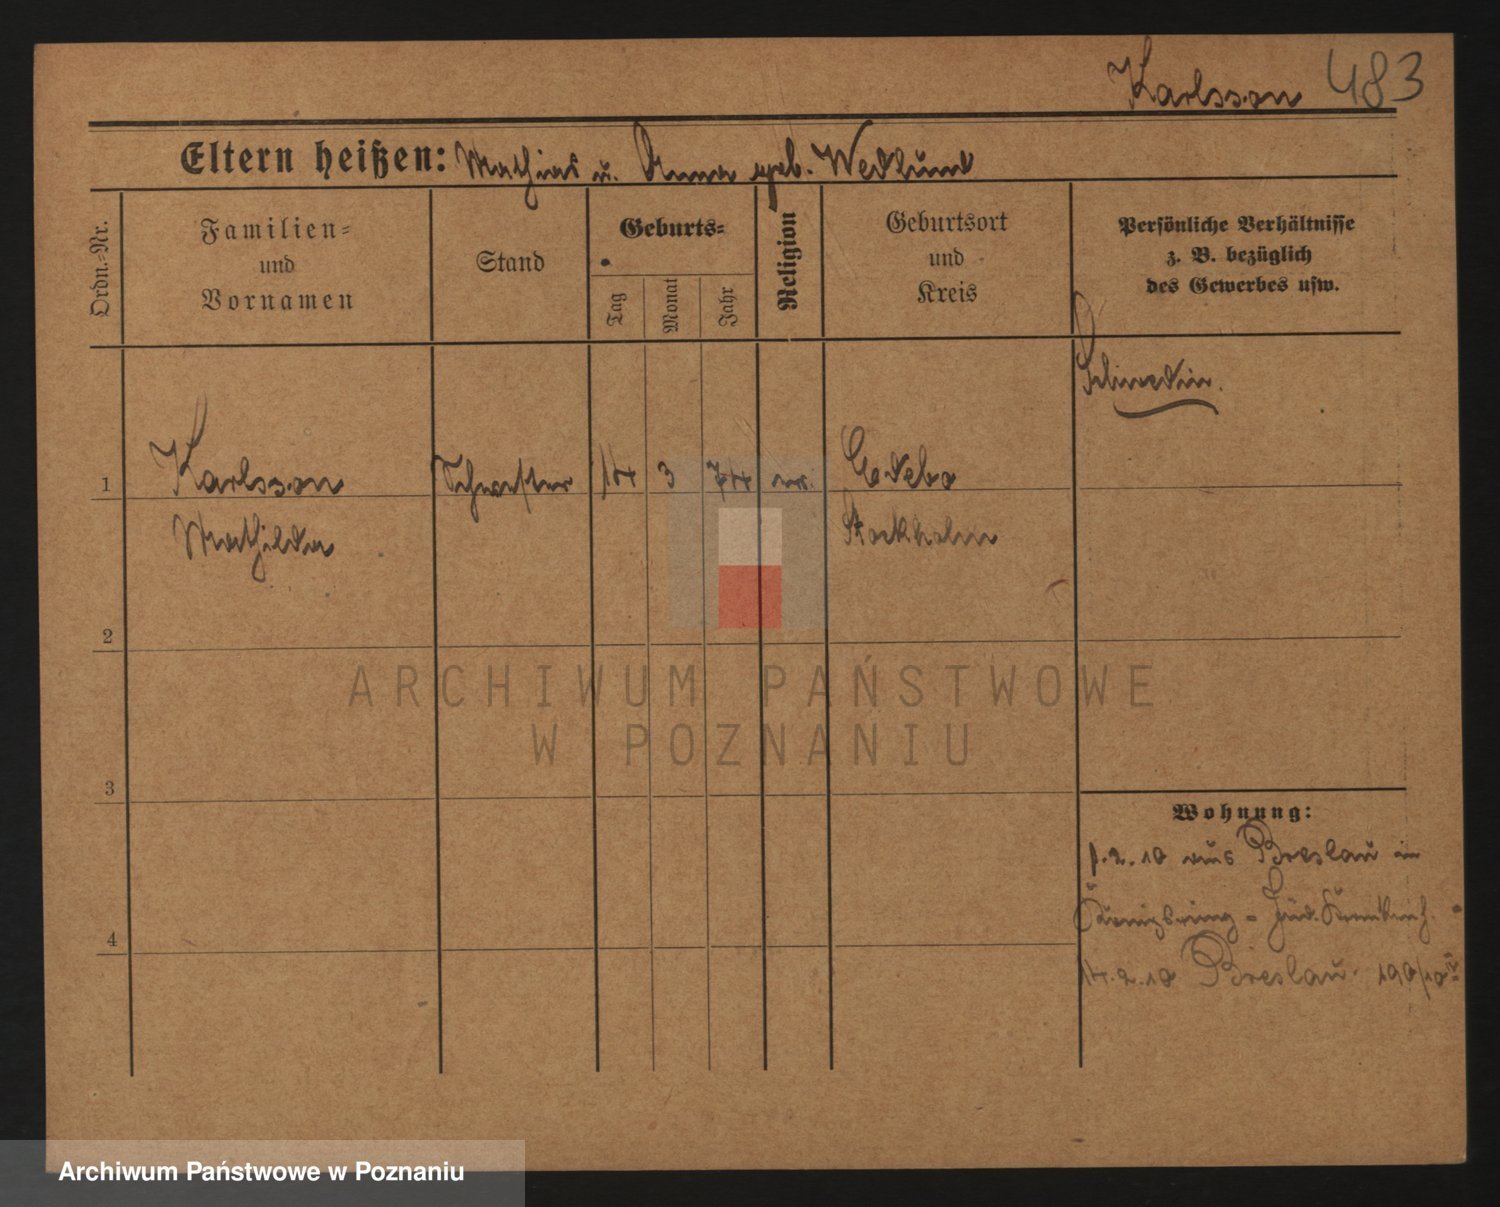 Karlsson 483
Eltern heißen: Mathias u. Anna geb. Wedlund
Ordn.-Nr.
Familien-
und
Vornamen
Stand
Geburts-
Tag
Monat
Jahr
Religion
Geburtsort
und
Kreis
Persönliche Verhältnisse
z. B. bezüglich
des Gewerbes usw.
Schwedin.
1 Karlsson Schwester 14 3 74 ev. Edebo
Mathilda Stockholm
2
3
4
Wohnung:
1.2.10 aus Breslau in
Königsring - Jüd. Krankenh.
14.2.10 Breslau 190/10
ARCHIWUM PAŃSTWOWE
W POZNANIU
Archiwum Państwowe w Poznaniu